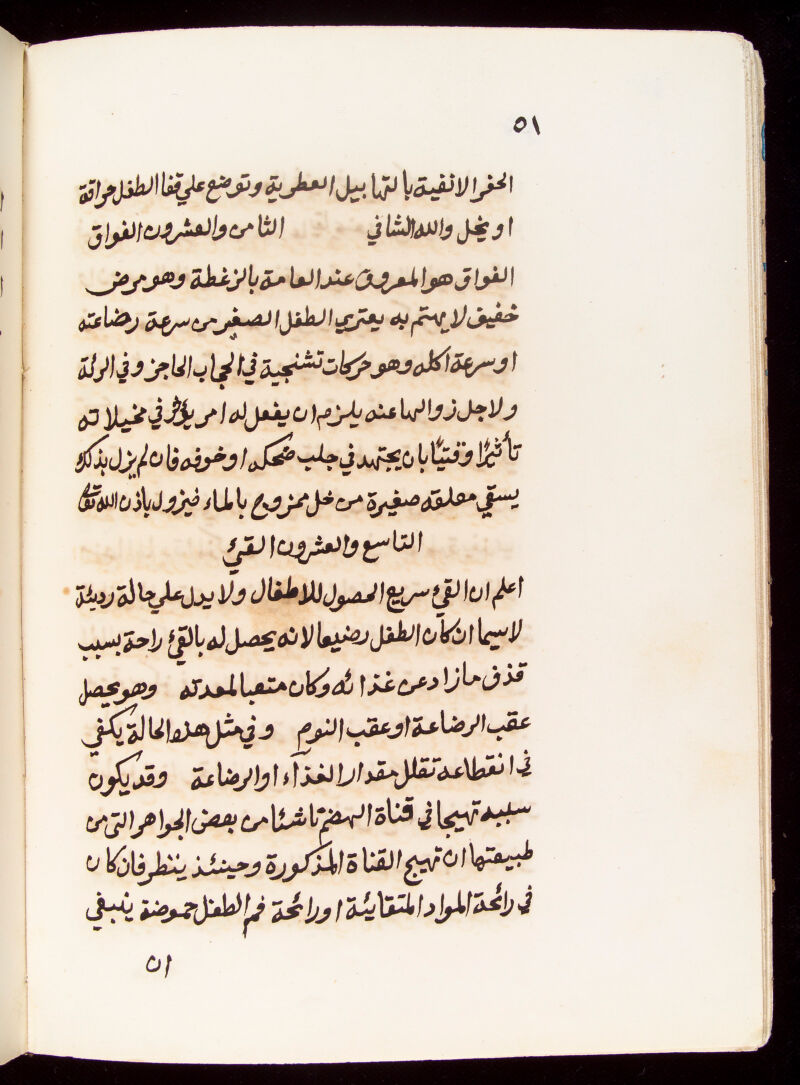 ٥١
الحفر الانفية بالتهابيل العطرية وتوضع علي قفا الطفل حراقة
او يخل والله الشافي الثامن والعشرون الفواق
الفواق هو المعروف عند العامة بالزغطة وهو مرض
خفيف لا يهتم به يعتري الطفل الصغير من سرعة رضاعته
او سرعة اكله وهو حركات تشنجية في الحجاب الحاجز وفي الرئة
ولاجل زوالها عنه يلزم ان يفعل له امر يؤثر في مخيلاته
تأثيرًا وقتيًا بان يجتهد في جلب ضحكه او خوفه فان لم يزل بذلك
يسقي معلقه صغيرة من خل ممزوج بالماء فيزول باذن الله تعالى
التاسع والعشرون القيئ
اعلم ان القيء سريع الحصول للاطفال ولا يدل علي حالة رديئة
لاسيما ان كان الطفل رضيعا لانه يحصل له بالقيئ راحة بسبب
قذف ما زاد عن غذائه وكان متعبا لمعدته وهو يحصل
عقب الرضاعة او عقب النوم وفي مثل هذه الحالة يكفي
في انقطاعه تقلل مقدار الغذآء او الرضاعة وقد يكون
سببه تهيجا في قناة الهضم ناشئا من بعض الجواهر التى من
طبيعتها ان تهيج القناة المذكورة وحينئذ ينظر فان كان
في رائحة المواد المتقايئة او رائحة فم الطفل حموضة ينبغي
ان